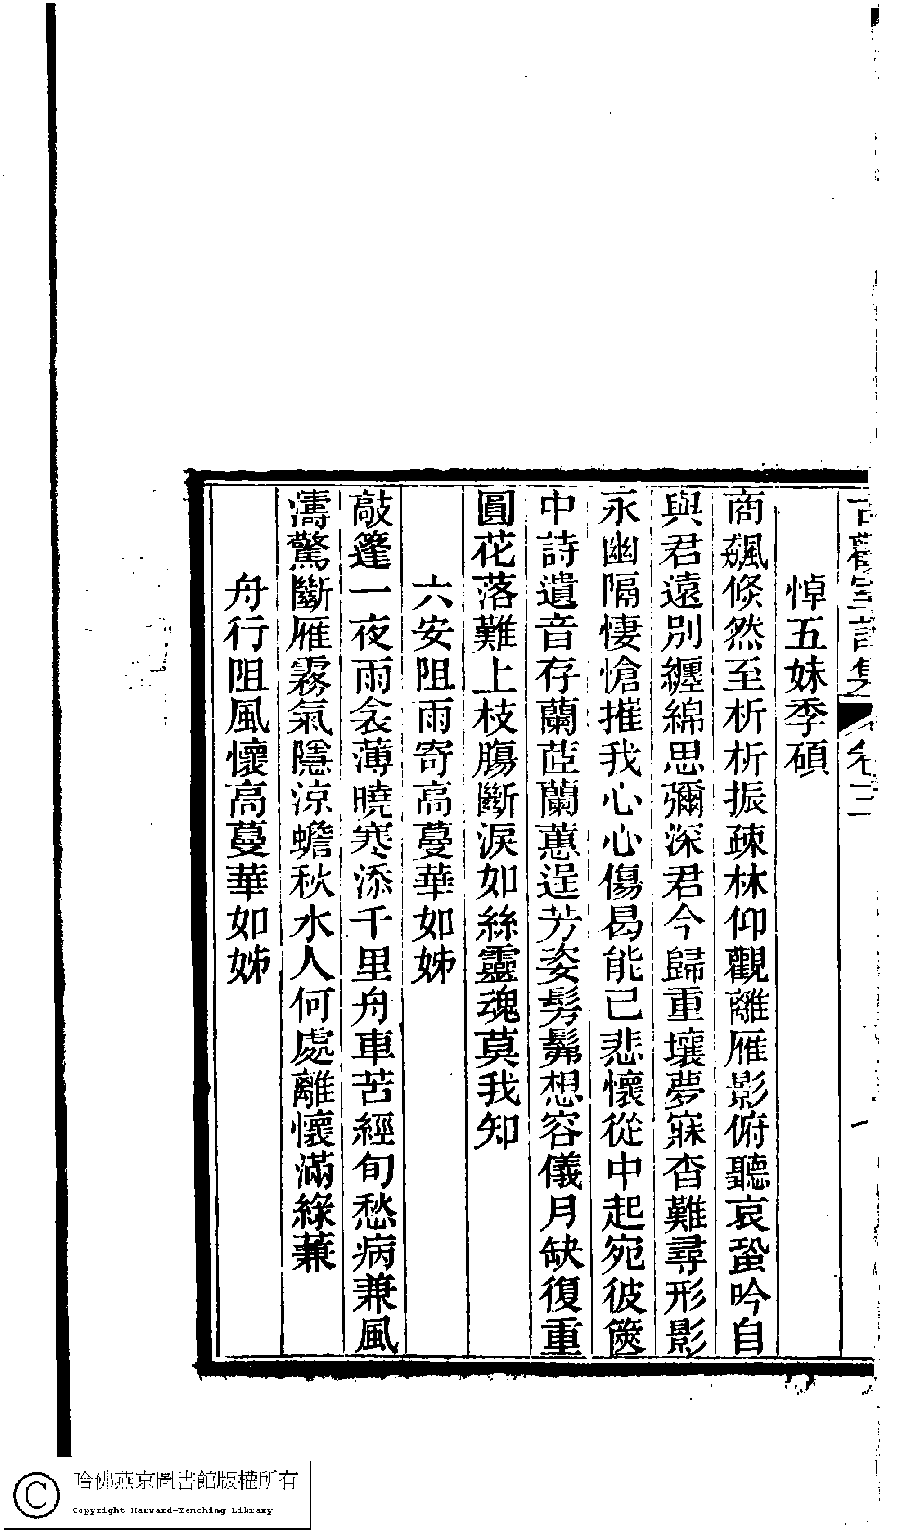 悼五妹季碩
商飆倏然至析析振疎林仰觀離雁影俯聽哀蛩吟自
與君遠別纏綿思彌深君今歸重壤夢寐杳難尋形影
永幽隔悽愴摧我心心傷曷能已悲懷從中起宛彼篋
中詩遺音存蘭茝蘭蕙逞芳姿髣髴想容儀月缺復重
圓花落難上枝腸斷淚如絲靈魂莫我知
六安阻雨寄高蔓華如姊
敲篷一夜雨衾薄曉寒添千里舟車苦經旬愁病兼風
濤驚斷雁霧氣隱涼蟾秋水人何處離懷滿綠蒹
舟行阻風懷高蔓華如姊
哈佛燕京圖書館版權所有
Copyright Harvard-Yenching Library